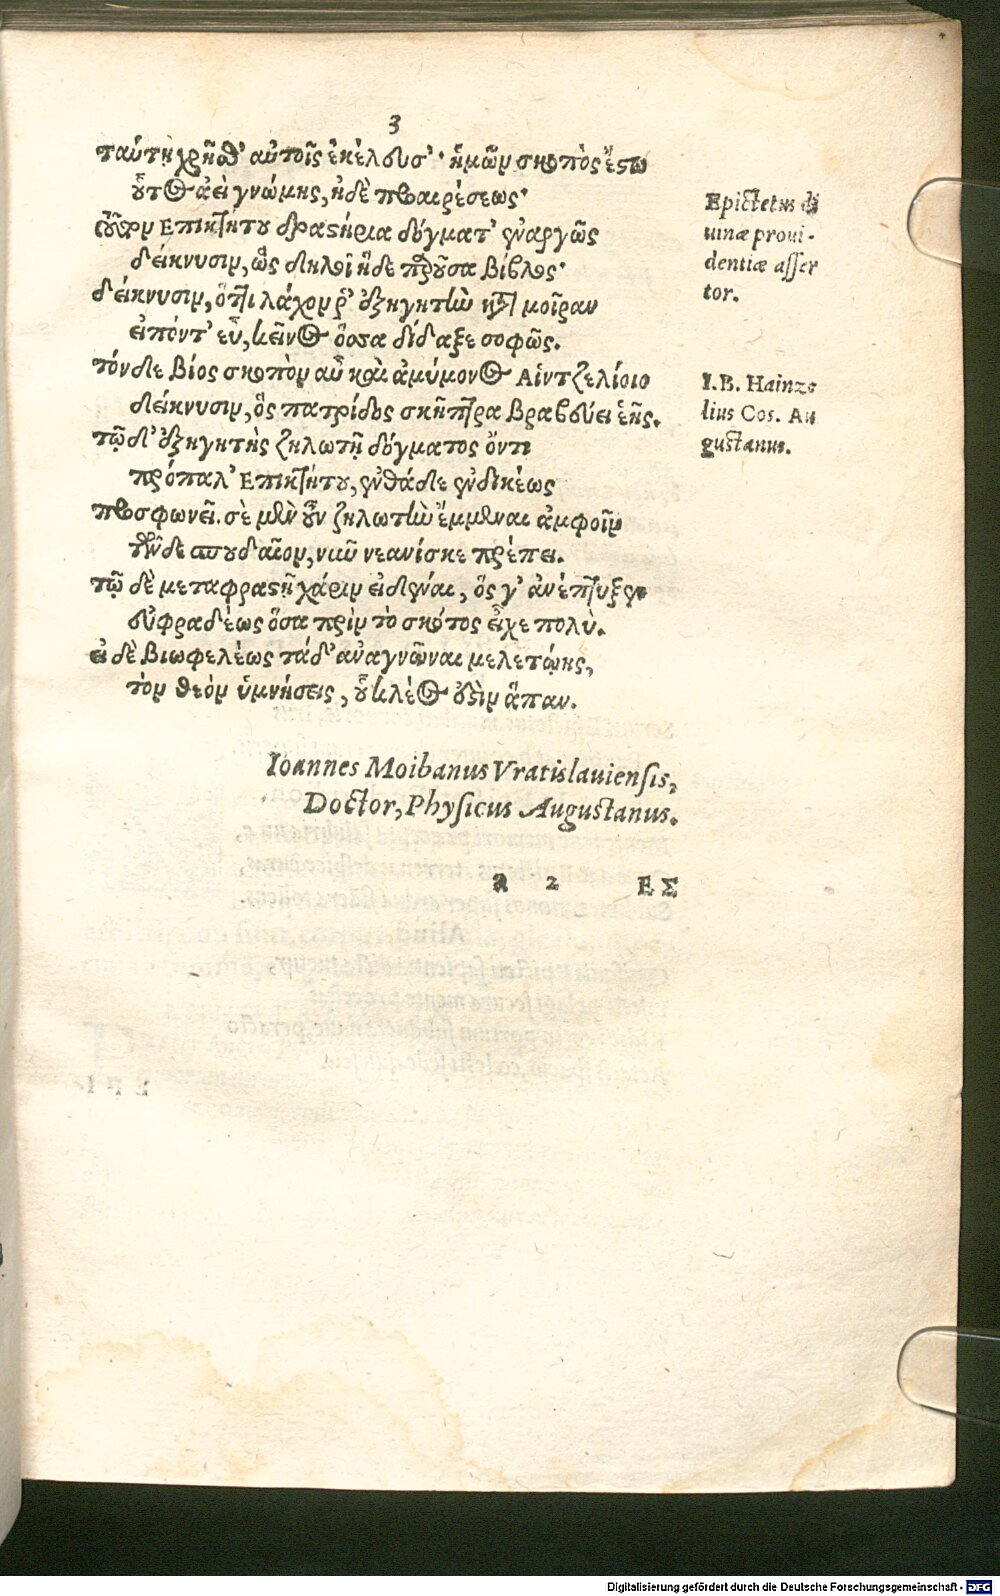 3
ταύτῃ χρῆσθ' αὐτοῖς ἐκέλευσ'· ἡμῶν σκοπὸς ἔστω
οὗτος ἀεὶ γνώμης, ἠδὲ προαιρέσεως·
Επικτήτου δραστήρια δόγματ' ἐναργῶς
δείκνυσιν, ὡς δηλοῖ ἥδε παροῦσα βίβλος·
δείκνυσιν, ὅττι λάχον ῥ' ἐξηγητὴν κατὰ μοῖραν
εἰπόντ' εὖ, κεῖνος ὅσσα δίδαξε σοφῶς.
τόνδε βίος σκοπὸν αὖ καὶ ἀμύμονος Αἰντζελίοιο
δείκνυσιν, ὃς πατρίδος σκῆπτρα βραβεύει ἑῆς.
τῷ δ' ἐξηγητὴς ζηλωτῇ δόγματος ὄντι
πρόπαλ' Επικτήτου, ἐνθάδε ἐνδικέως
προσφωνεῖ. σὲ μὲν οὖν ζηλωτὴν ἔμμεναι ἀμφοῖν
τῶνδε σπουδαῖον, νῦν νεανίσκε πρέπει.
τῷ δὲ μεταφραστῇ χάριν εἰδέναι, ὅς γ' ἀνέπτυξεν
εὐφραδέως ὅσα πρὶν τὸ σκότος εἶχε πολύ.
εἰ δὲ βιωφελέως τάδ' ἀναγνῶναι μελετῴης,
τὸν θεὸν ὑμνήσεις, οὗ κλέος ἐστὶν ἅπαν.
Epictetus di
uinæ proui-
dentiæ asser
tor.
I.B. Hainze
lius Cos. Au
gustanus.
Ioannes Moibanus Vratislauiensis,
Doctor, Physicus Augustanus.
a 2 ΕΣ
Digitalisierung gefördert durch die Deutsche Forschungsgemeinschaft - DFG